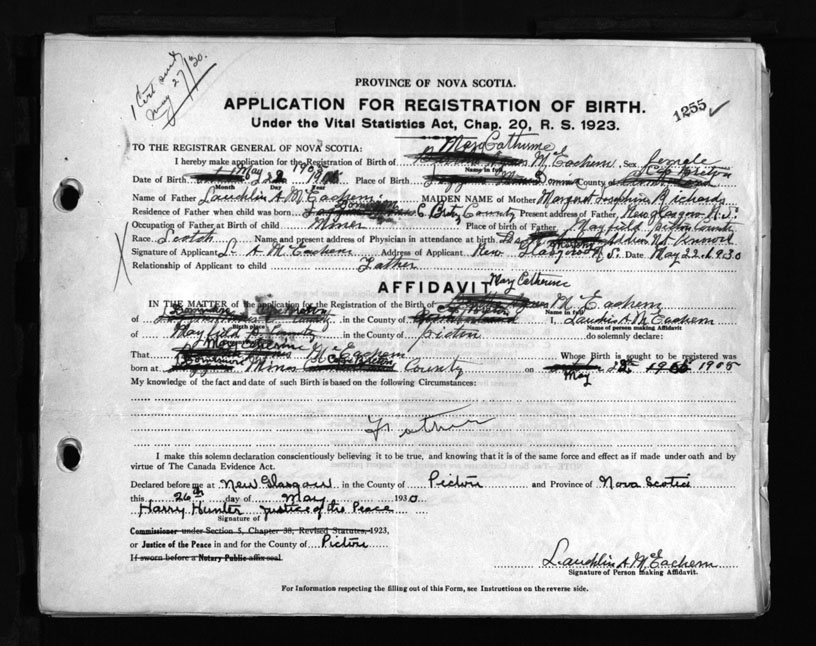 1 Cert sent
May 27/30.
PROVINCE OF NOVA SCOTIA.
APPLICATION FOR REGISTRATION OF BIRTH.
1255 ✓
Under the Vital Statistics Act, Chap. 20, R. S. 1923.
TO THE REGISTRAR GENERAL OF NOVA SCOTIA:
Mary Catherine
I hereby make application for the Registration of Birth of McEachern, Sex female
Name in full
Date of Birth May 22 1905 Place of Birth Dominion County of
Month Day Year
Name of Father Lauchlin A. McEachern MAIDEN NAME of Mother Margaret Josephine Richards
Residence of Father when child was born C. Breton County Present address of Father New Glasgow N.S.
Occupation of Father at Birth of child Miner Place of birth of Father Mayfield Picton County
Race Scotch Name and present address of Physician in attendance at birth
Signature of Applicant L. A. McEachern Address of Applicant New Glasgow N.S. Date May 22. 1930
Relationship of Applicant to child Father
AFFIDAVIT
Mary Catherine
IN THE MATTER of the application for the Registration of the Birth of McEachern
Name in full
of in the County of I, Lauchlin A. McEachern
Birth place
Name of person making Affidavit
of Mayfield County in the County of Picton do solemnly declare:
Mary Catherine
That McEachern Whose Birth is sought to be registered was
born at Mines County on May 22 1905
My knowledge of the fact and date of such Birth is based on the following Circumstances:
Father
I make this solemn declaration conscientiously believing it to be true, and knowing that it is of the same force and effect as if made under oath and by
virtue of The Canada Evidence Act.
Declared before me at New Glasgow in the County of Pictou and Province of Nova Scotia
this 26th day of May 1930
Harry Hunter Justice of the Peace
Signature of
Commissioner under Section 5, Chapter 38, Revised Statutes, 1923,
or Justice of the Peace in and for the County of Pictou
If sworn before a Notary Public affix seal.
Lauchlin A. McEachern
Signature of Person Making Affidavit.
For Information respecting the filling out of this Form, see Instructions on the reverse side.